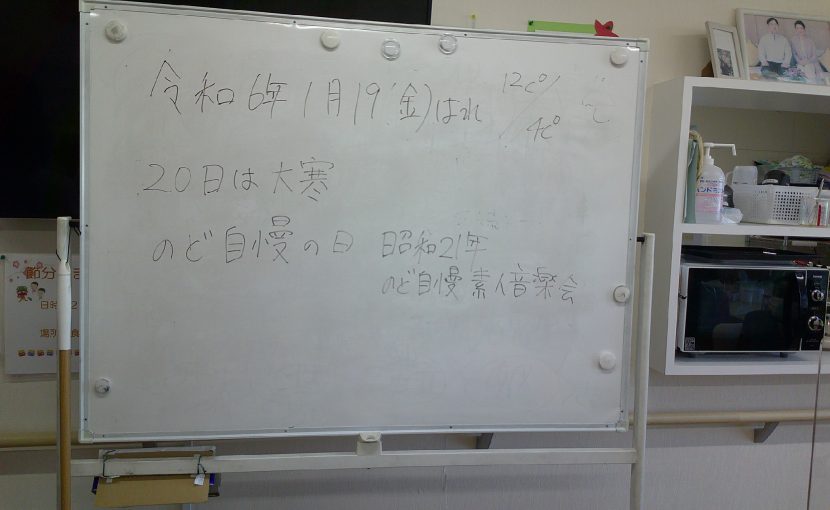 令和6年1月19(金)はれ 12c°/4c°
20日は大寒
のど自慢の日 昭和21年
のど自慢素人音楽会
節分
日時
場所